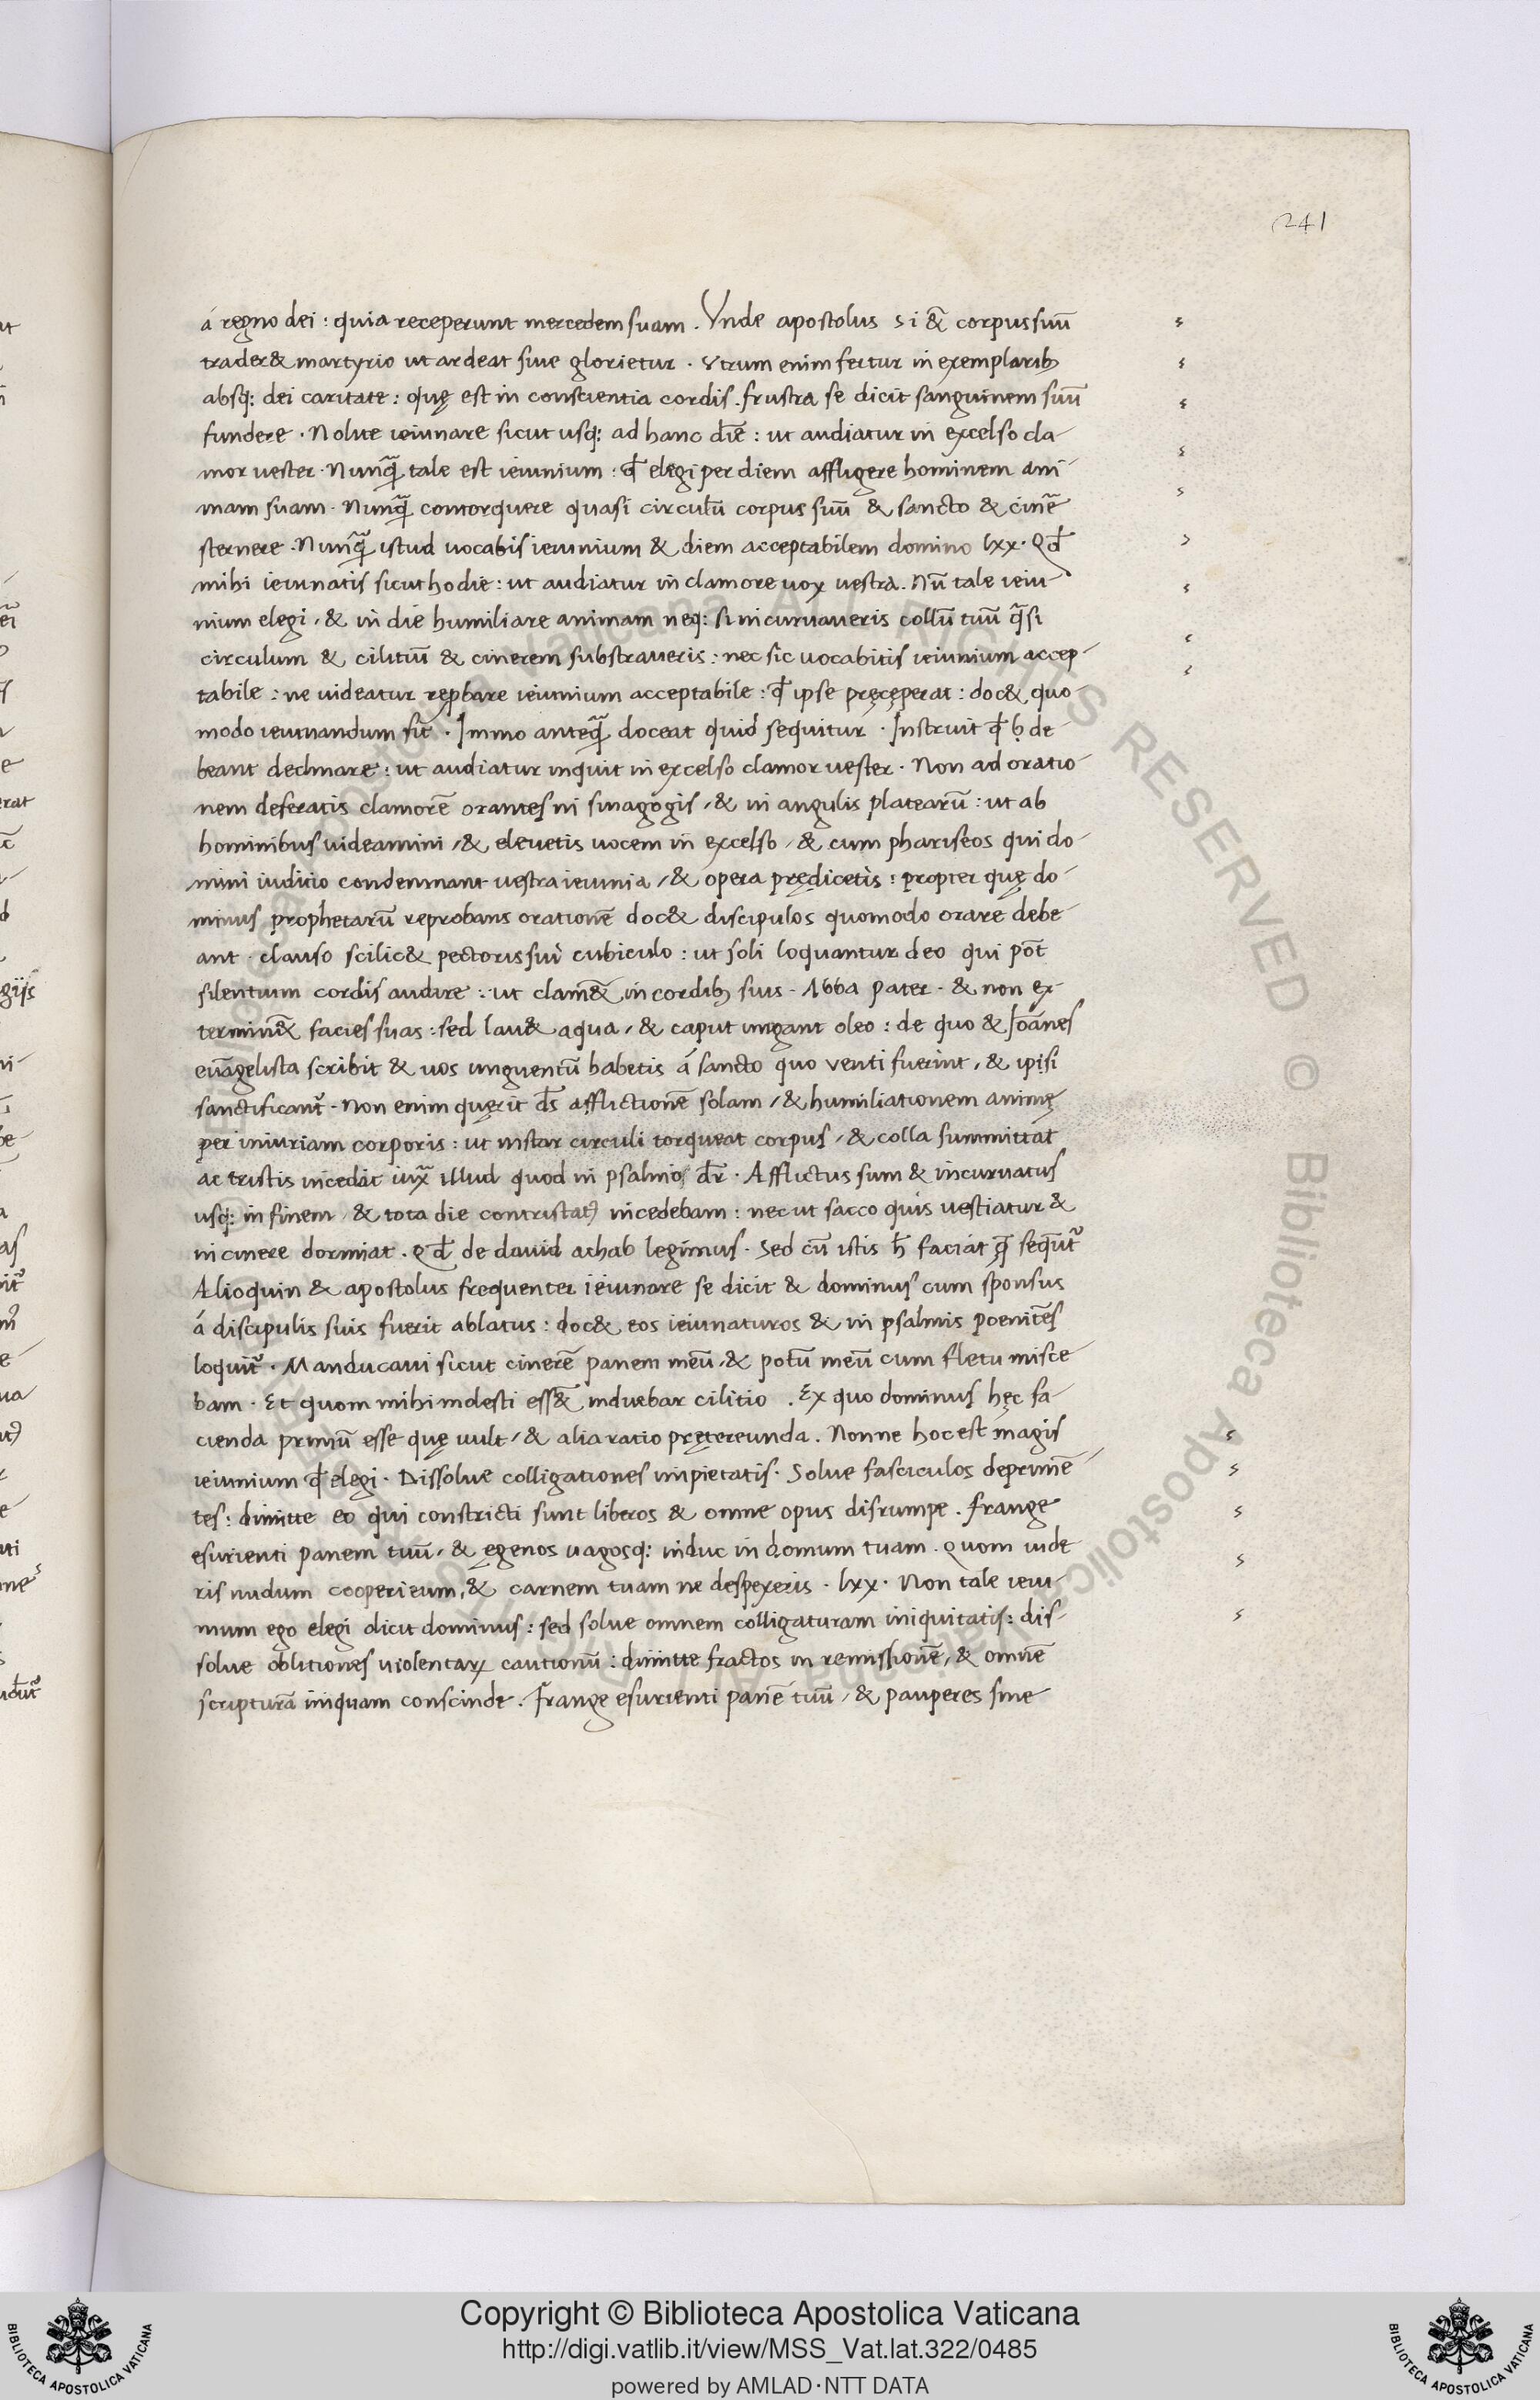 241
á regno dei : quia receperunt mercedem suam . Vnde apostolus si &̃ corpus suū
trader& martyrio ut ardeat siue glorietur . Vtrum enim fertur in exemplarib;
absq; dei caritate : quę est in conscientia cordis . frustra se dicit sanguinem suū
fundere . Nolite ieiunare sicut usq; ad hanc diē : ut audiatur in excelso cla-
mor uester . Nunq̃ tale est ieiunium : qđ elegi per diem affligere hominem ani-
mam suam . Nunq̃ contorquere quasi circulū corpus suū & sancto & cinẽ
sternere . Nunq̃ istud uocabis ieiunium & diem acceptabilem domino lxx . Qđ
mihi ieiunatis sicut hodie : ut audiatur in clamore uox uestra . Nū tale ieiu-
nium elegi , & in die humiliare animam neq; si incuruaueris collū tuū q̃si
circulum & cilitiū & cinerem substraueris : nec sic uocabitis ieiunium accep-
tabile : ne uideatur reꝓbare ieiunium acceptabile : qđ ipse pręceperat : doc& quo-
modo ieiunandum sit . Immo anteq̃ doceat quid sequitur . Instruit qđ h̶ de-
beant declinare : ut audiatur inquit in excelso clamor uester . Non ad oratio-
nem deferatis clamorē orantes in sinagogis , & in angulis platearū : ut ab
hominibus uideamini , & eleuetis uocem in excelso , & cum phariseos qui do-
mini iuditio condemnant uestra ieiunia , & opera prędicetis : propter quę do-
minus prophetarū reprobans orationē doc& discipulos quomodo orare debe-
ant . clauso scilic& pectoris sui cubiculo : ut soli loquantur deo qui pōt
silentium cordis audire : ut clam&̃ in cordib; suis . Abba pater . & non ex-
termin&̃ facies suas : sed lau& aqua , & caput ungant oleo : de quo & Ioānes
euāgelista scribit & uos unguentū habetis á sancto quo uenti fuerint , & ipisi
sanctificant᷑ . Non enim quęrit ds̄ afflictionē solam , & humiliationem animę
per iniuriam corporis : ut instar circuli torqueat corpus , & colla summittat
ac tristis incedat iux̃ illud quod in psalmo dr̄ . Afflictus sum & incuruatus
usq; in finem , & tota die contristatꝰ incedebam : nec ut sacco quis uestiatur &
in cinere dormiat . Qđ de dauid achab legimus . Sed cū istis h̄ faciāt q̄ sequūt᷑
Alioquin & apostolus frequenter ieiunare se dicit & dominus cum sponsus
á discipulis suis fuerit ablatus : doc& eos ieiunaturos & in psalmis poenitēs
loquit᷑ . Manducaui sicut cinerē panem meū , & potū meū cum fletu misce-
bam . Et quom mihi molesti ess&̃ induebar cilitio . Ex quo dominus hęc fa-
cienda primū esse quę uult , & alia ratio prętereunda . Nonne hoc est magis
ieiunium qđ elegi . Dissolue colligationes impietatis . Solue fasciculos deprimē-
tes : dimitte eo qui constricti sunt liberos & omne opus disrumpe . Frange
esurienti panem tuū , & egenos uagosq; induc in domum tuam . Quom uide-
ris nudum cooperi eum , & carnem tuam ne despexeris . lxx . Non tale ieiu-
nium ego elegi dicit dominus : sed solue omnem colligaturam iniquitatis : dis-
solue oblitiones uiolentaꝝ cautionū : dimitte fractos in remissionē , & omnē
scripturā iniquam conscinde . Frange esurienti panē tuū , & pauperes sine
Copyright © Biblioteca Apostolica Vaticana
http://digi.vatlib.it/view/MSS_Vat.lat.322/0485
powered by AMLAD·NTT DATA